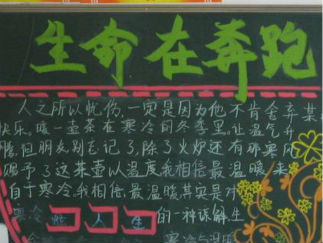 生命在奔跑
人之所以忧伤,一定是因为他不肯舍弃某
快乐。暖一壶茶在寒冷的冬季里,让温气升
腾,但朋友别忘记了,除了火炉还有那寒风
赐予了这茶壶以温度,我相信,最温暖,来
自于寒冷,我相信,最温暖,其实是对
寒冷
人 生
的一种谅解,生